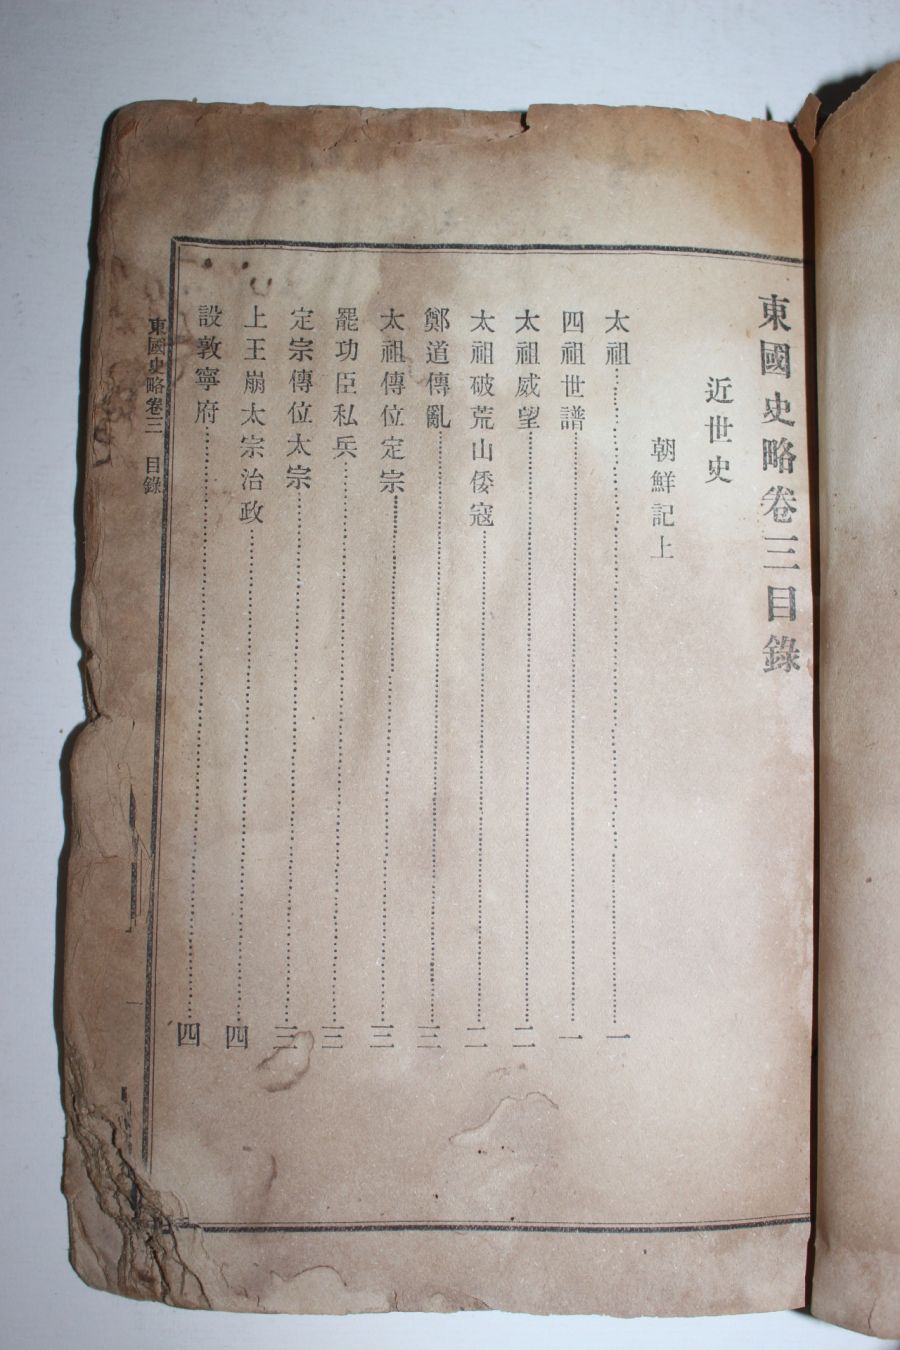 東國史略卷三目錄
近世史
朝鮮記上
太祖……一
四祖世譜……一
太祖威望……二
太祖破荒山倭寇……二
鄭道傳亂……三
太祖傳位定宗……三
罷功臣私兵……三
定宗傳位太宗……三
上王崩太宗治政……四
設敦寧府……四
東國史略卷三 目錄